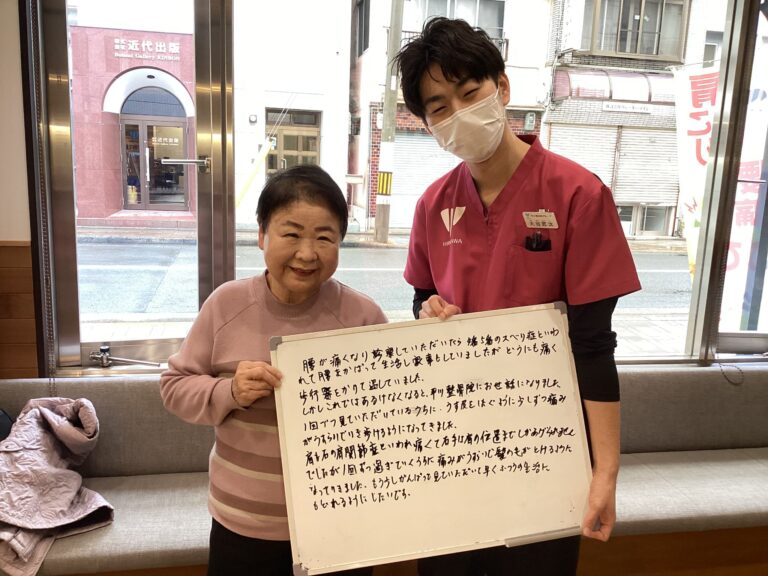 近代出版
Domani Gallery KINDAI
肩こり
腰が痛くなり診察していただいたら 4番5番のスベリ症といわ
れて腰をかばって生活し家事もしていましたが どうにも痛く
歩行器をかりて過していました。
しかしこれではあるけなくなると、平川整骨院にお世話になりました。
1回づつ見ていただけているうちに、うす皮をはぐように少しずつ痛み
がうすらいでいき歩けるようになってきました。
肩も右の肩関節症といわれ 痛くて右手は肩の位置までしかあがりません
でしたが1回ずつ過ぎていくうちに 痛みがうすらいで髪の毛がとけるように
なってきました。もう少しがんばって見ていただいて早くふつうの生活に
もどれるようにしたいです。